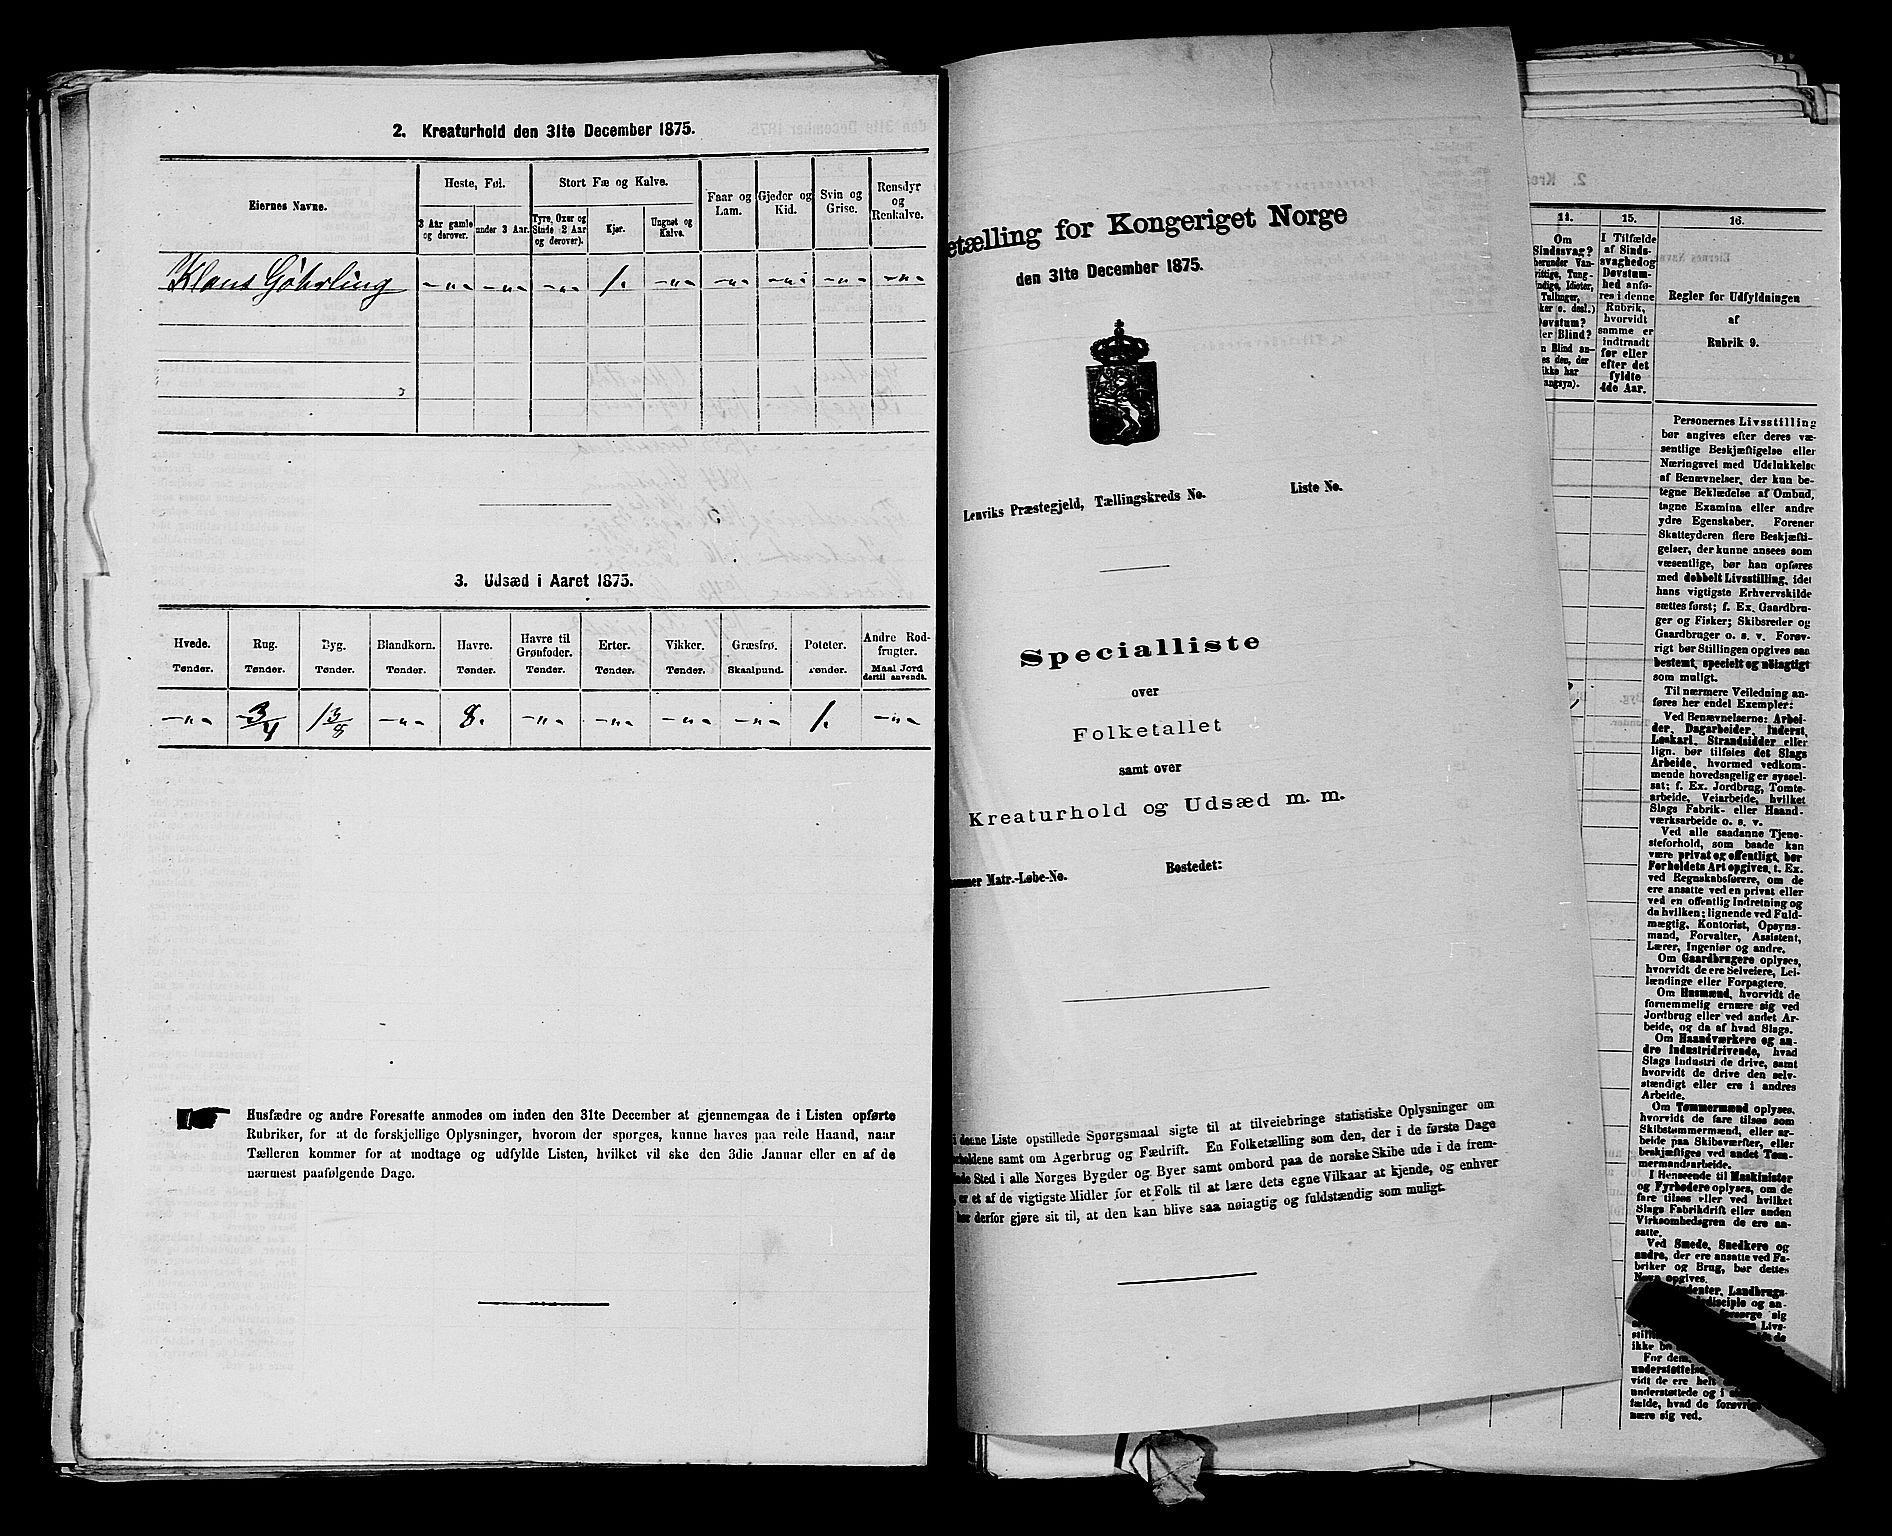 2. Kreaturhold den 31te December 1875.
Eiernes Navne.
Heste, Føl.
3 Aar gamle og derover.
under 3 Aar.
Stort Fæ og Kalve.
Tyre, Oxer og Stude 2 Aar og derover).
Kjør.
Ungnøt og Kalve.
Faar og Lam.
Gjeder og Kid.
Svin og Grise.
Rensdyr og Renkalve.
Klaus Göhrling -"- -"- -"- 1. -"- -"- -"- -"- -"-
3. Udsæd i Aaret 1875.
Hvede. Rug. Byg. Blandkorn. Havre. Havre til Grønfoder. Erter. Vikker. Græsfrø. Poteter. Andre Rodfrugter.
Tønder. Tønder. Tønder. Tønder. Tønder. Tønder. Tønder. Tønder. Skaalpund. Tønder. Maal Jord dertil anvendt.
-"- 3/4 1 3/8 -"- 8. -"- -"- -"- -"- 1. -"-
Husfædre og andre Foresatte anmodes om inden den 31te December at gjennemgaa de i Listen opførte
Rubriker, for at de forskjellige Oplysninger, hvorom der spørges, kunne haves paa rede Haand, naar
Tælleren kommer for at modtage og udfylde Listen, hvilket vil ske den 3die Januar eller en af de
nærmest paafølgende Dage.
etælling for Kongeriget Norge
den 31te December 1875.
Lenviks Præstegjeld, Tællingskreds No. Liste No.
Specialliste
over
Folketallet
samt over
Kreaturhold og Udsæd m. m.
Matr.-Løbe-No. Bostedet:
i denne Liste opstillede Spørgsmaal sigte til at tilveiebringe statistiske Oplysninger om
holdene samt om Agerbrug og Fædrift. En Folketælling som den, der i de første Dage
Sted i alle Norges Bygder og Byer samt ombord paa de norske Skibe ude i de frem-
er et af de vigtigste Midler for et Folk til at lære dets egne Vilkaar at kjende, og enhver
bør derfor gjøre sit til, at den kan blive saa nøiagtig og fuldstændig som muligt.
15.
16.
Om
Sindssvag?
Døvstum?
I Tilfælde
af Sinds-
svaghed og
Døvstum-
hed anfø-
res i denne
Rubrik,
hvorvidt
samme er
indtraadt
før eller
efter det
fyldte
4de Aar.
Regler for Udfyldningen
af
Rubrik 9.
Personernes Livsstilling
bør angives efter deres væ-
sentlige Beskjæftigelse eller
Næringsvei med Udelukkelse
af Benævnelser, der kun be-
tegne Beklædelse af Ombud,
tagne Examina eller andre
ydre Egenskaber. Forener
Skatteyderen flere Beskjæfti-
gelser, der kunne ansees som
væsentlige, bør han opføres
med dobbelt Livsstilling, idet
hans vigtigste Erhvervskilde
sættes først; f. Ex. Gaardbru-
ger og Fisker; Skibsreder og
Gaardbruger o. s. v. Forøv-
rigt bør Stillingen opgives saa
bestemt, specielt og nøiagtigt
som muligt.
Til nærmere Veiledning an-
føres her endel Exempler:
Ved Benævnelserne: Arbei-
der, Dagarbeider, Inderst,
Løskarl, Strandsidder eller
lign. bør tilføies det Slags
Arbeide, hvormed vedkom-
mende hovedsagelig er syssel-
sat; f. Ex. Jordbrug, Tomte-
arbeide, Veiarbeide, hvilket
Slags Fabrik- eller Haand-
værksarbeide o. s. v.
Ved alle saadanne Tjene-
steforhold, som baade kan
være privat og offentligt, bør
Forholdets Art opgives, t. Ex.
ved Regnskabsførere, om de
ere ansatte ved en privat eller
ved en offentlig Indretning og
da hvilken; lignende ved Fuld-
mægtig, Kontorist, Opsyns-
mand, Forvalter, Assistent,
Lærer, Ingeniør og andre.
Om Gaardbrugere oplyses,
hvorvidt de ere Selveiere, Lei-
lændinge eller Forpagtere.
Om Husmænd, hvorvidt de
fornemmelig ernære sig ved
Jordbrug eller ved andet Ar-
beide, og da af hvad Slags.
Om Haandværkere og an-
dre Industridrivende, hvad
Slags Industri de drive, samt
hvorvidt de drive den selv-
stændigt eller ere i andres
Arbeide.
Om Tømmermænd oplyses,
hvorvidt de fare tilsøs som
Skibstømmermænd, eller ar-
beide paa Skibsværfter, eller
beskjæftiges ved andet Tøm-
mermandsarbeide.
I Henseende til Maskinister
og Fyrbødere oplyses, om de
fare tilsøs eller ved hvilket
Slags Fabrikdrift eller anden
Virksomhedsgren de ere an-
satte.
Ved Smede, Snedkere og
andre, der ere ansatte ved Fa-
briker og Brug, bør dettes
Navn opgives.